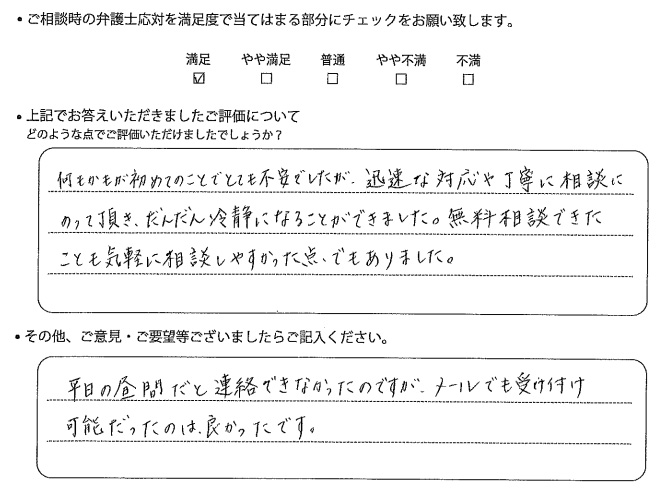 ・ご相談時の弁護士応対を満足度で当てはまる部分にチェックをお願い致します。
満足 やや満足 普通 やや不満 不満
☑ □ □ □ □
・上記でお答えいただきましたご評価について
どのような点でご評価いただけましたでしょうか？
何もかもが初めてのことでとても不安でしたが、迅速な対応や丁寧に相談に
のって頂き、だんだん冷静になることができました。無料相談できた
ことも気軽に相談しやすかった点、でもありました。
・その他、ご意見・ご要望等ございましたらご記入ください。
平日の昼間だと連絡できなかったのですが、メールでも受け付け
可能だったのは、良かったです。